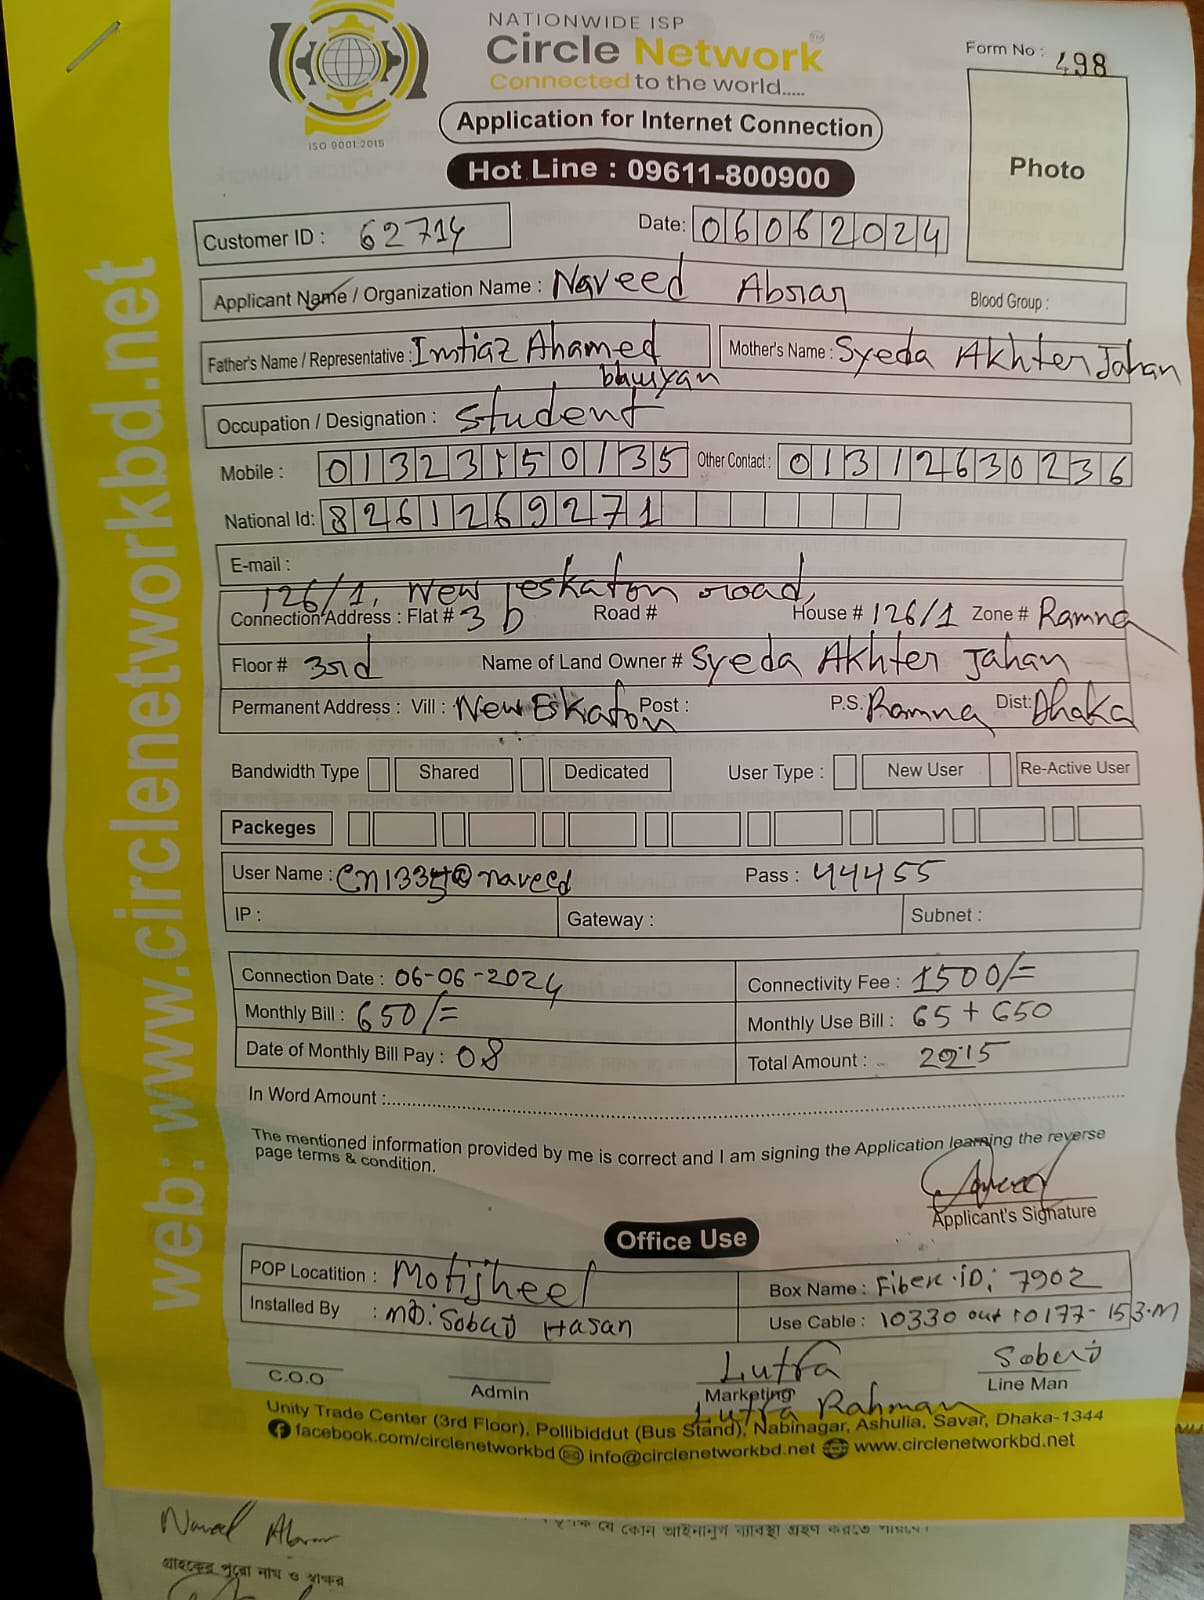 NATIONWIDE ISP
Circle Network
Connected to the world.....
ISO 9001:2015
Form No : 498
Application for Internet Connection
Hot Line : 09611-800900
Photo
Customer ID : 62714
Date: 06062024
Applicant Name / Organization Name : Naveed Absrar Blood Group :
Father's Name / Representative : Imtiaz Ahamed bhuiyan
Mother's Name : Syeda Akhter Jahan
Occupation / Designation : student
Mobile : 01323150135 Other Contact : 01312630236
National Id: 8261269271
E-mail :
126/1, New eskaton road,
Connection Address : Flat # 3 D Road # House # 126/1 Zone # Ramna
Floor # 3rd Name of Land Owner # Syeda Akhter Jahan
Permanent Address : Vill : New Eskaton Post : P.S. Ramna Dist: Dhaka
Bandwidth Type Shared Dedicated User Type : New User Re-Active User
Packeges
User Name : cn1335@naveed Pass : 44455
IP : Gateway : Subnet :
Connection Date : 06-06-2024 Connectivity Fee : 1500/=
Monthly Bill : 650/= Monthly Use Bill : 65 + 650
Date of Monthly Bill Pay : 08 Total Amount : 2215
In Word Amount :
The mentioned information provided by me is correct and I am signing the Application learning the reverse
page terms & condition.
Applicant's Signature
Office Use
POP Locatition : Motijheel Box Name : Fiber.iD: 7902
Installed By : MD: Soburj Hasan Use Cable : 10330 out 10177-153.M
Lutfa Soburj
C.O.O Admin Marketing Line Man
Lutfa Rahman
Unity Trade Center (3rd Floor), Pollibiddut (Bus Stand), Nabinagar, Ashulia, Savar, Dhaka-1344
facebook.com/circlenetworkbd info@circlenetworkbd.net www.circlenetworkbd.net
web: www.circlenetworkbd.net
যে কোন আইনানুগ ব্যবস্থা গ্রহণ করতে পারবে।
গ্রাহকের পুরো নাম ও স্বাক্ষর